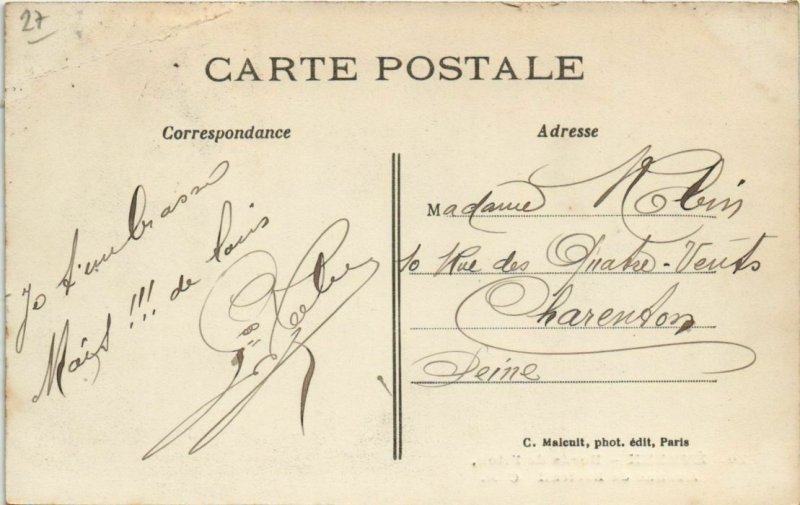 27
CARTE POSTALE
Correspondance
Je t'embrasse
Mais !!! de loin
Adresse
Madame Robin
10 Rue des Quatre-Vents
Charenton
Seine
C. Malcuit, phot. édit, Paris